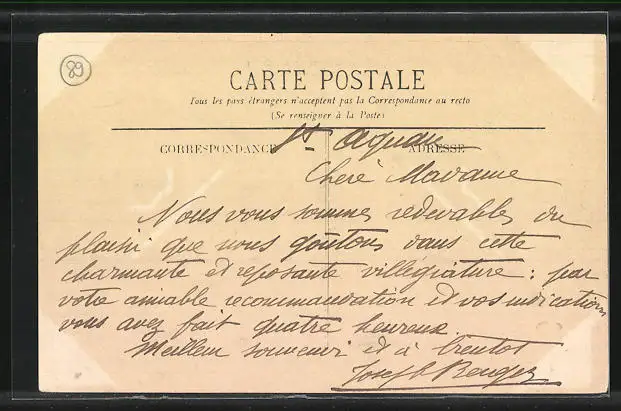 89
CARTE POSTALE
Tous les pays étrangers n'acceptent pas la Correspondance au recto
(Se renseigner à la Poste)
CORRESPONDANCE
ADRESSE
St
Chère Madame
Nous vous sommes redevables du
plaisir que nous goûtons dans cette
charmante et reposante villégiature : par
votre aimable recommandation et vos indications
vous avez fait quatre heureux.
Meilleur souvenir et à bientot
Joseph